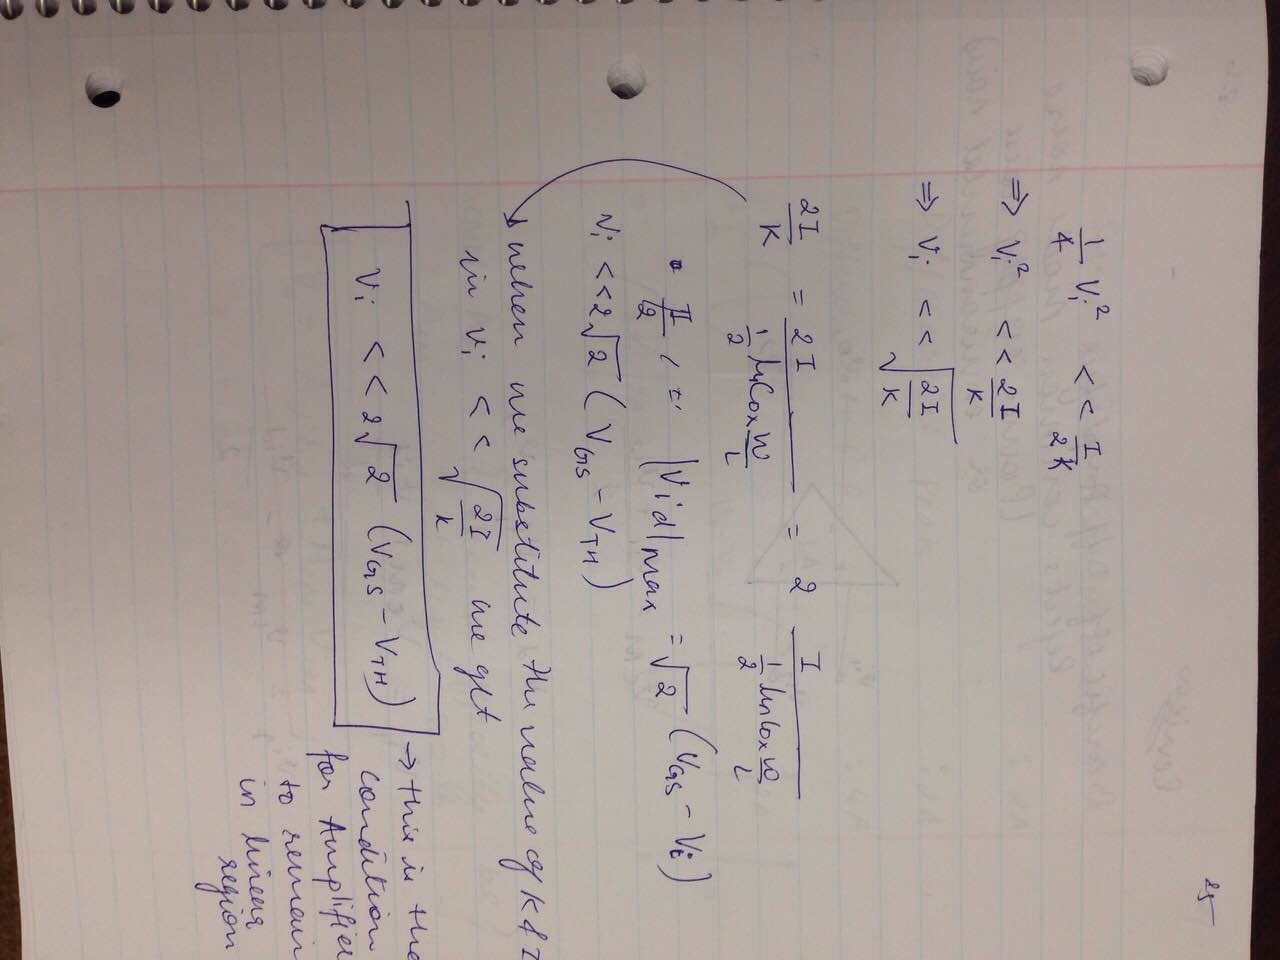 25
1/4 Vi² << I/2K
⇒ Vi² << 2I/K
⇒ Vi << √(2I/K)
2I/K = 2I/(1/2 μnCox W/L) = 2 I/(1/2 μnCox W/L)
• I/2, = |Vid|max = √2 (VGS - Vt)
Vi << 2√2 (VGS - VTH)
→ when we substitute the value of K & I
in Vi << √(2I/K) we get
Vi << 2√2 (VGS - VTH) → this is the
condition
for Amplifier
to remain
in linear
region